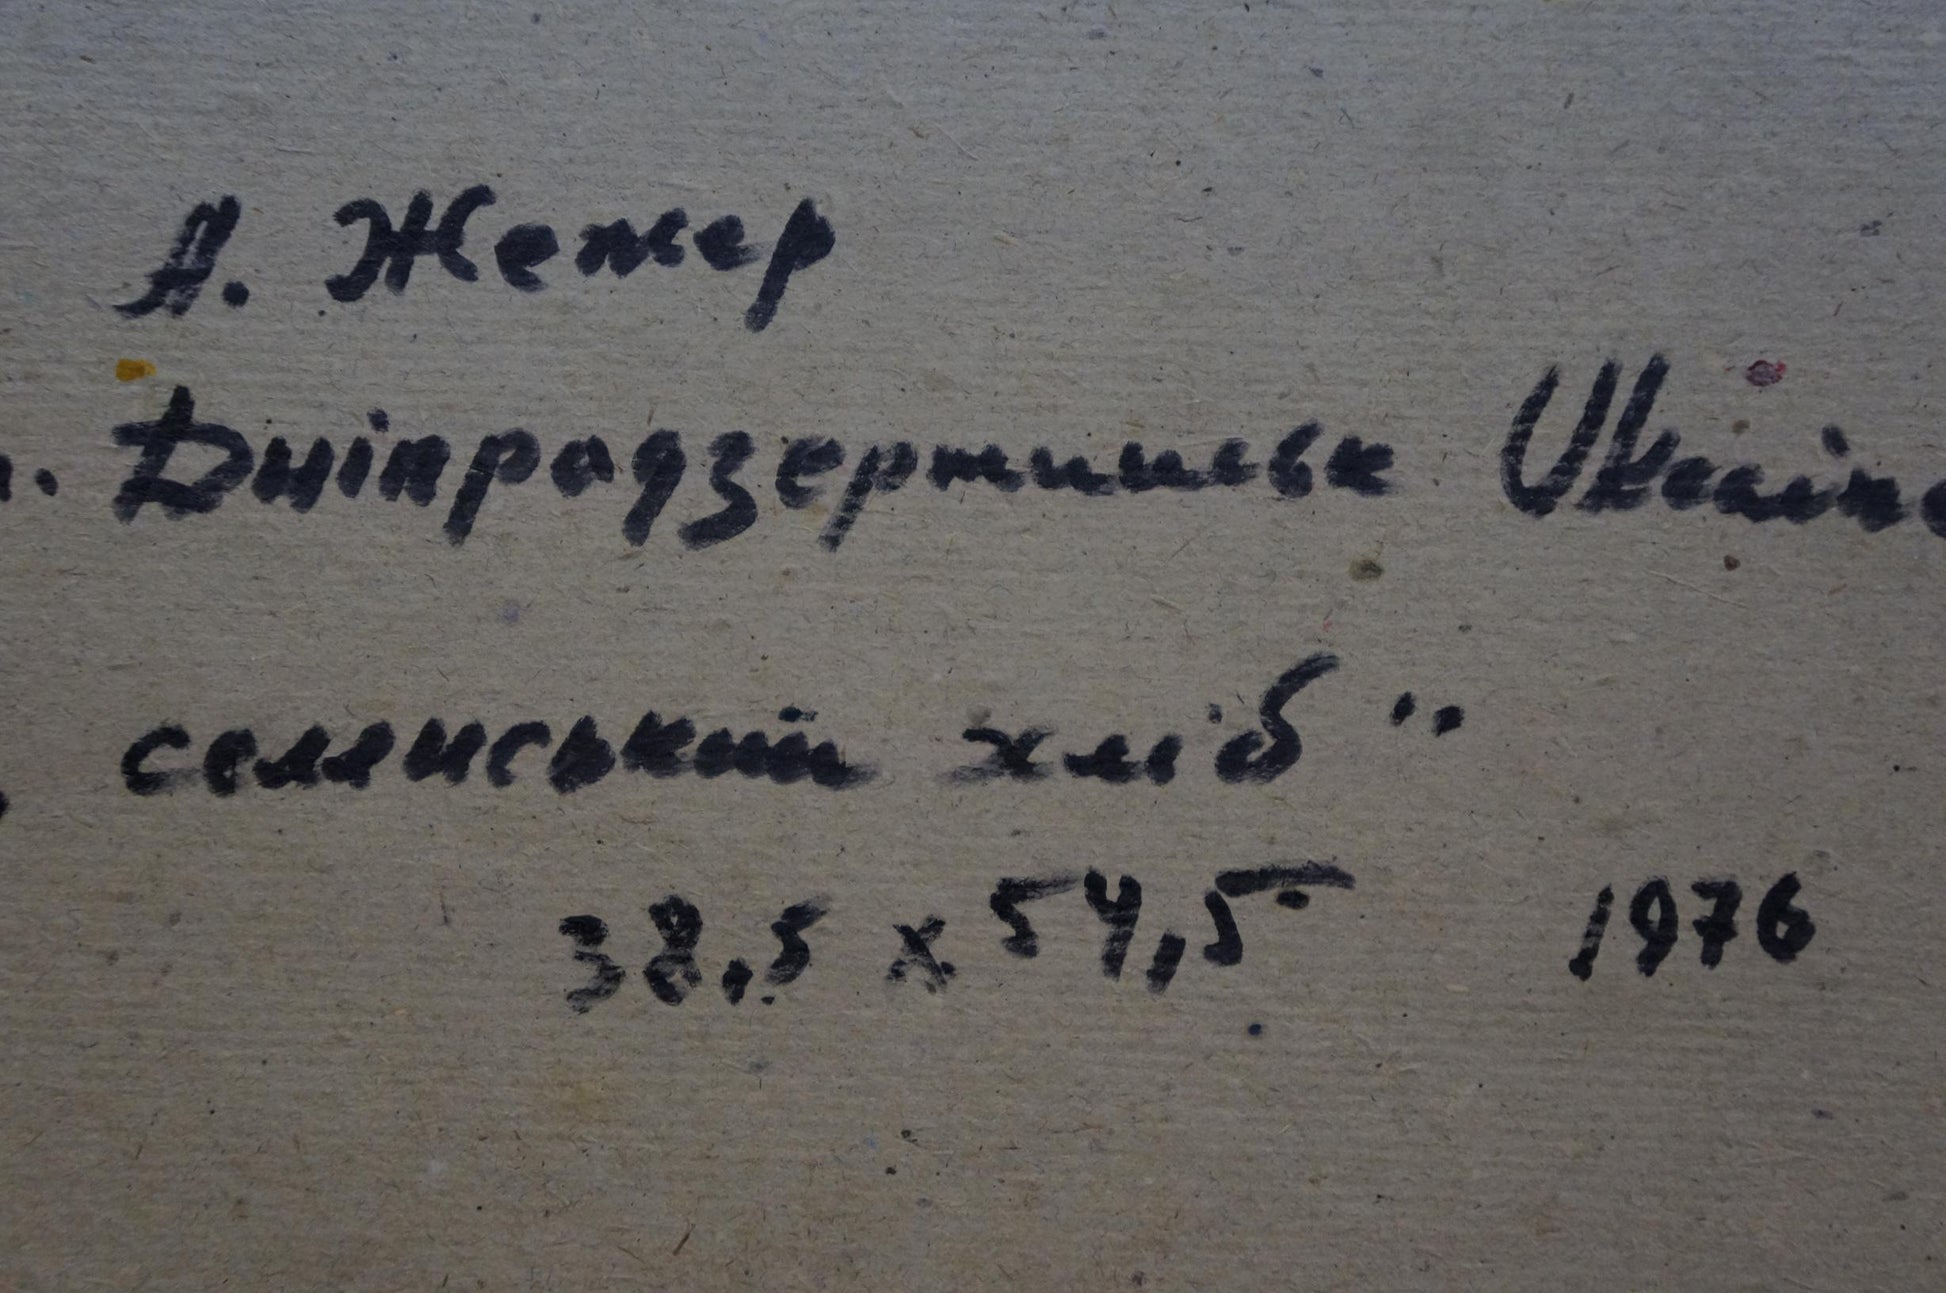 А. Жежер
м. Дніпродзержинськ Ukraine
„селянський хліб"
38,5 х 54,5 1976